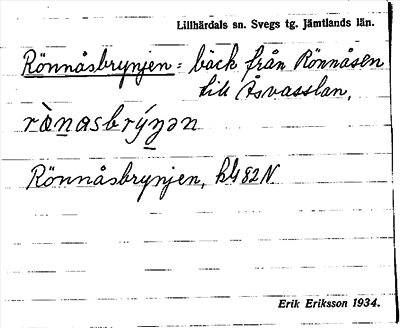 Lillhärdals sn. Svegs tg. Jämtlands län.
Rönnåsbrynjen = bäck från Rönnåsen
till Åsvasslan.
Rönnåsbrynjen, bl 82 N.
Erik Eriksson 1934.